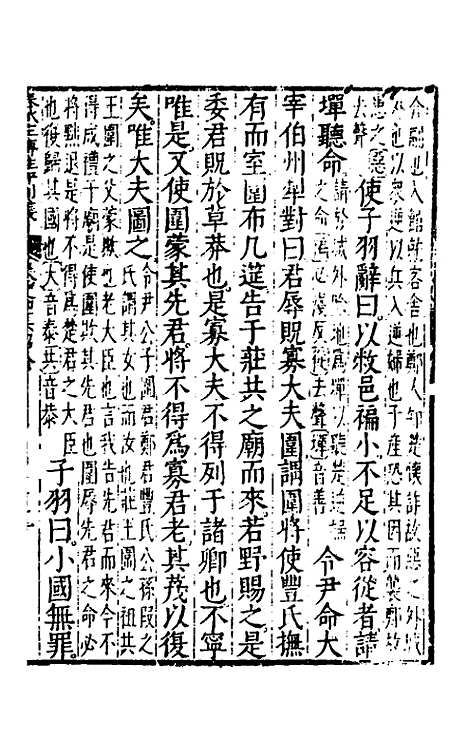 也入館就客舍也鄭人知楚懷詐故惡之外城
外也以眾逆以兵入逆婦也子產恐其因而襲鄭故
患之惡去聲使子羽辭曰以敝邑褊小不足以容從者請
墠聽命請於城外除地為墠以聽楚逆婦之命從去聲墠音善令尹命大
宰伯州犁對曰君辱貺寡大夫圍謂圍將使豐氏撫
有而室圍布几筵告于莊共之廟而來若野賜之是
委君貺於草莽也是寡大夫不得列于諸卿也不寧
唯是又使圍蒙其先君將不得爲寡君老其茂以復
矣唯大夫圖之令尹公子圍君鄭君豐氏公孫段之氏謂其女也而汝也莊王圍之祖共
王圍之父蒙欺也老大臣也言我告先君而來今不
得成禮于廟是使圍欺其先君也圍辱先君之命必
將黜退是將不得爲楚君之大臣也復歸其國也大音泰共音恭子羽曰小國無罪